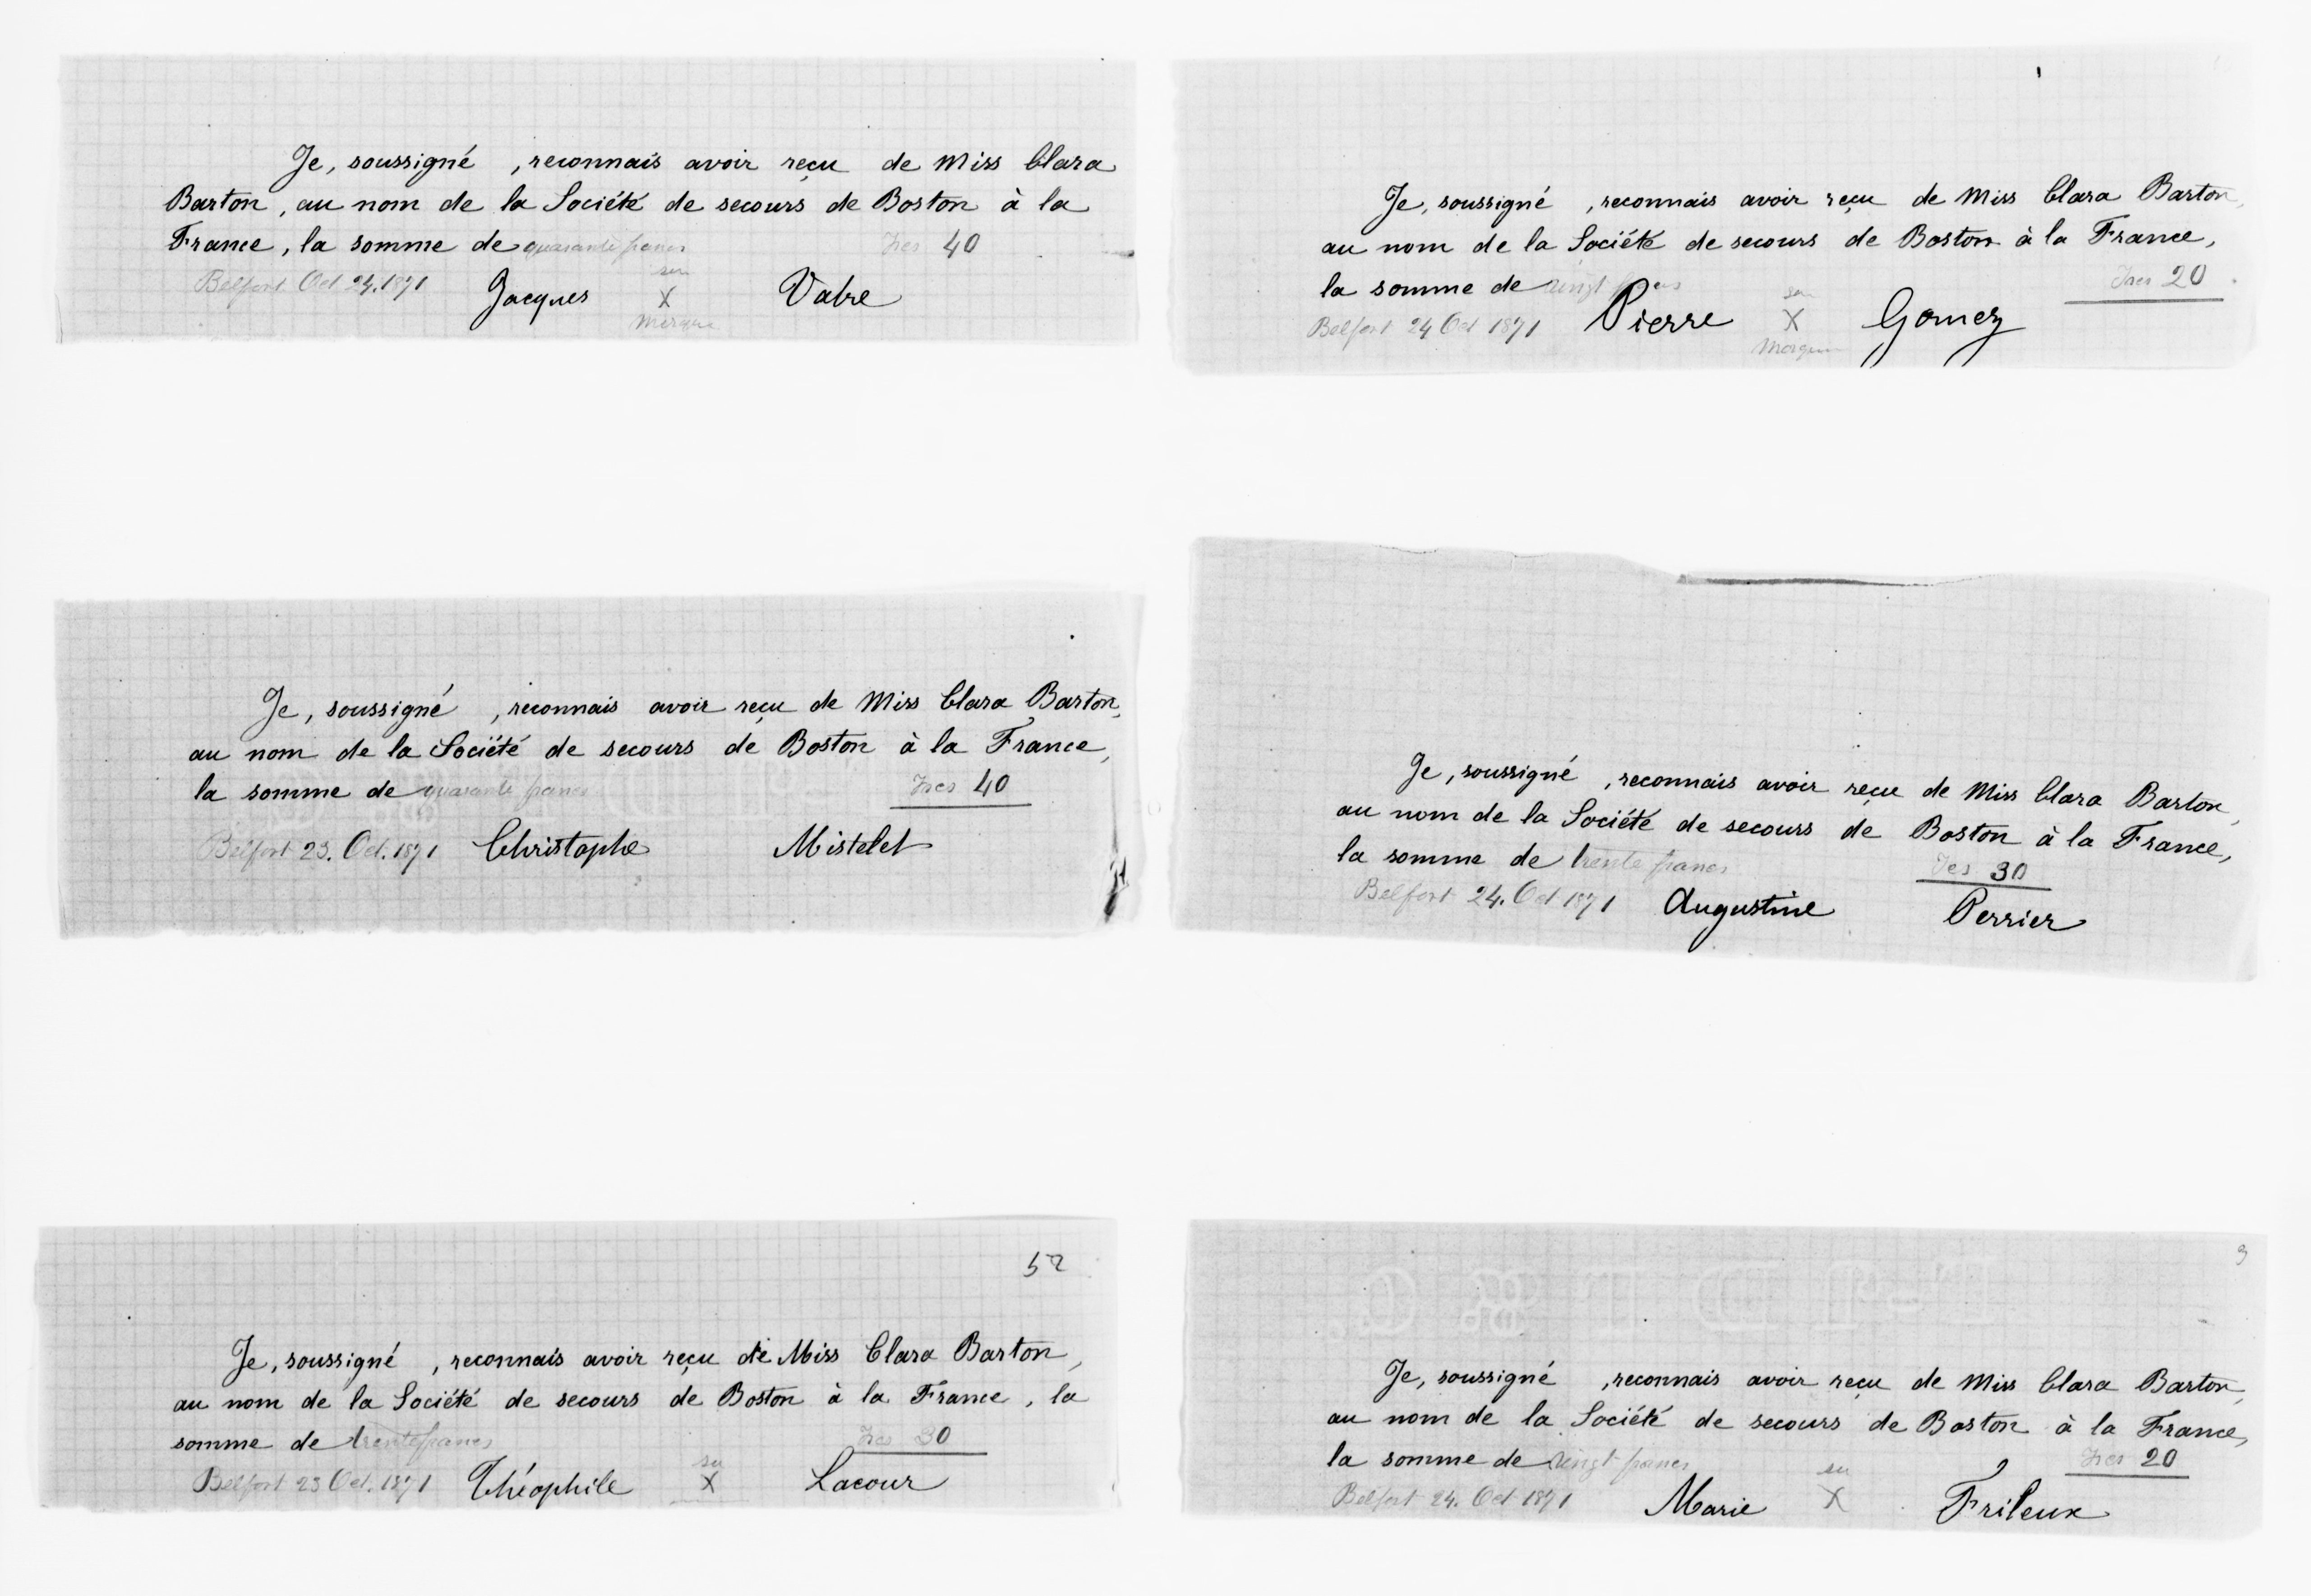 Je, soussigné , reconnais avoir reçu de Miss Clara
Barton, au nom de la Société de secours de Boston à la
France, la somme de quarante francs Frcs 40
son
Belfort Oct 24. 1871 Jacques X Vabre
Marque
Je, soussigné , reconnais avoir reçu de Miss Clara Barton,
au nom de la Société de secours de Boston à la France,
la somme de vingt francs Frcs 20
son
Belfort 24 Oct 1871 Pierre X Gomez
Marque
Je, soussigné , reconnais avoir reçu de Miss Clara Barton,
au nom de la Société de secours de Boston à la France,
la somme de quarante francs Frcs 40
Belfort 23. Oct. 1871 Christophe Mistelet
Je, soussigné , reconnais avoir reçu de Miss Clara Barton,
au nom de la Société de secours de Boston à la France,
la somme de trente francs Fcs 30
Belfort 24. Oct 1871 Augustine Perrier
52
Je, soussigné , reconnais avoir reçu de Miss Clara Barton,
au nom de la Société de secours de Boston à la France, la
somme de trente francs Frcs 30
Belfort 23 Oct. 1871 Théophile X Lacour
Je, soussigné , reconnais avoir reçu de Miss Clara Barton,
au nom de la Société de secours de Boston à la France,
la somme de vingt francs Frcs 20
Belfort 24. Oct 1871 Marie X Frileux